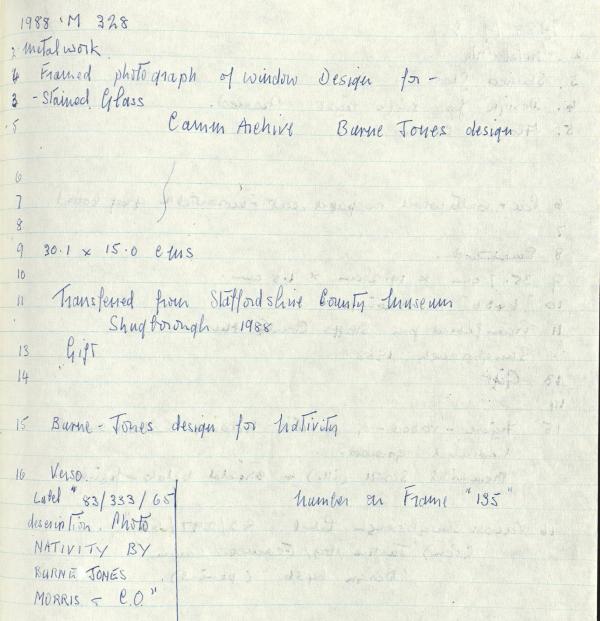 1988 · M 328
2 metalwork
4 Framed photograph of window Design for -
3 - Stained Glass
5 Camm Archive Burne Jones design
6
7
8
9 30.1 x 15.0 cms
10
11 Transferred from Staffordshire County Museum
Shugborough 1988
13 Gift
14
15 Burne-Jones design for Nativity
16 Verso.
Label "83/333/65 Number on Frame "135"
description. Photo
NATIVITY BY
BURNE JONES
MORRIS & C.O."